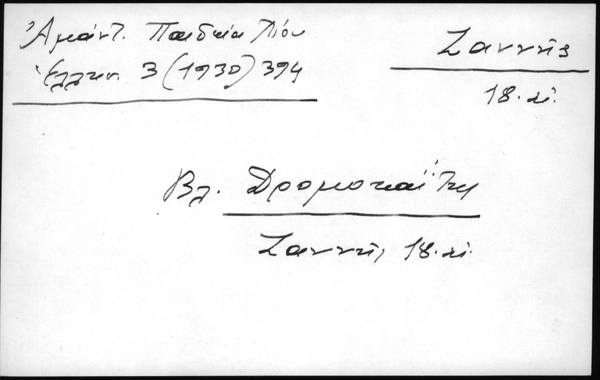 Ἀμάντ. Παιδεία Χίου
Ἑλλην. 3 (1930) 394
Ζαννής
18. αἰ.
Βλ. Δρομοκαΐτη
Ζαννής, 18. αἰ.